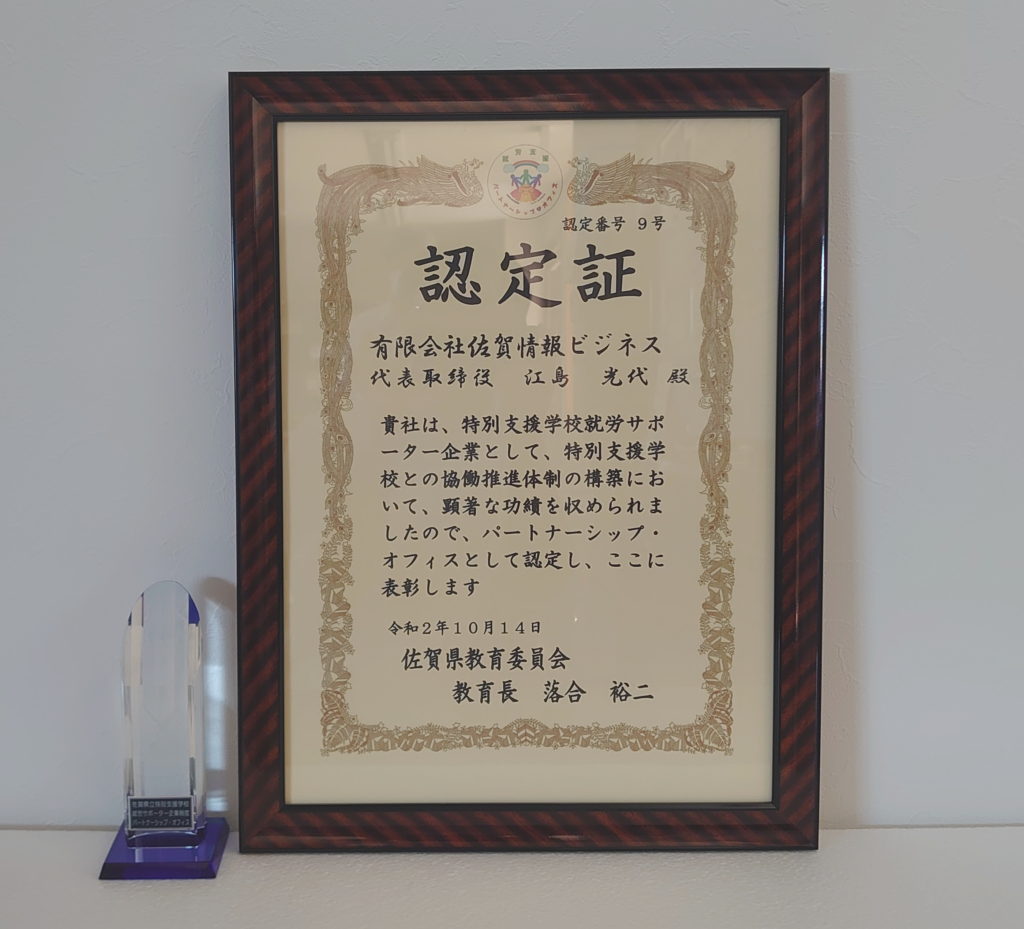 就労支援
パートナーシップ・オフィス
認定番号 9号
認定証
有限会社佐賀情報ビジネス
代表取締役 江島 光代 殿
貴社は、特別支援学校就労サポ
ーター企業として、特別支援学
校との協働推進体制の構築にお
いて、顕著な功績を収められま
したので、パートナーシップ・
オフィスとして認定し、ここに
表彰します
令和2年10月14日
佐賀県教育委員会
教育長 落合 裕二
佐賀県立特別支援学校
就労サポーター企業制度
パートナーシップ・オフィス